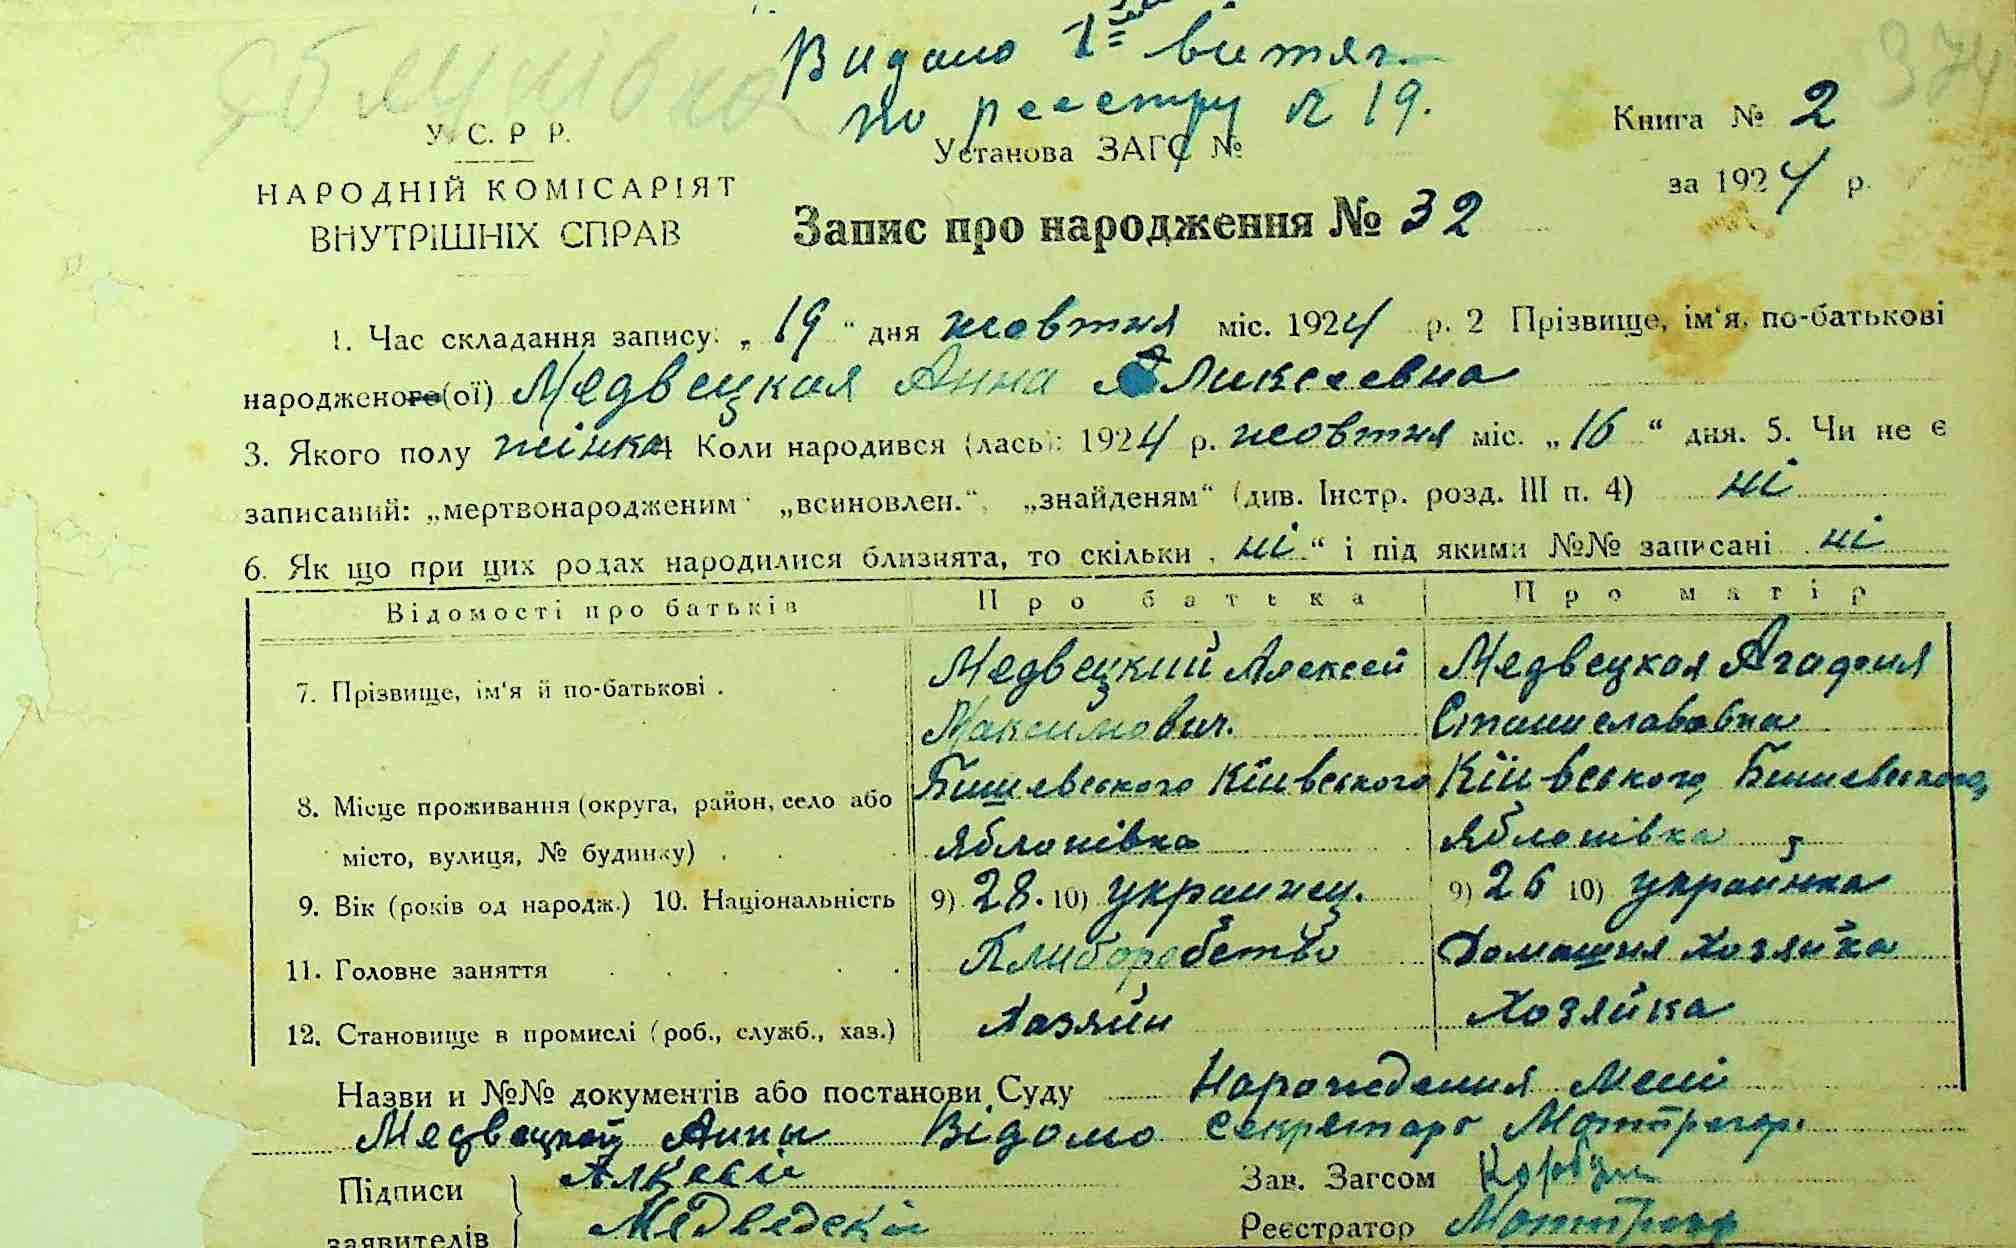 Яблунівка
Видано 1 витяг.
по реестру № 19.
374
У. С. Р Р.
Установа ЗАГС №
Книга № 2
НАРОДНІЙ КОМІСАРІЯТ
ВНУТРІШНІХ СПРАВ
за 1924 р.
Запис про народження № 32
1. Час складання запису: „19“ дня жовтня міс. 1924 р. 2 Прізвище, ім‘я, по-батькові
народженого(ої) Медвецкая Анна Аликсеевна
3. Якого полу жінка 4 Коли народився (лась): 1924 р. жовтня міс. „16“ дня. 5. Чи не є
записаний: „мертвонародженим“ „всиновлен.“, „знайденям“ (див. Інстр. розд. III п. 4) ні
6. Як що при цих родах народилися близнята, то скільки „ні“ і під якими №№ записані ні
Відомості про батьків Про батька Про матір
7. Прізвище, ім‘я й по-батькові . Медвецкий Алексей Медвецкая Агафия
Максимович. Станиславовна
8. Місце проживання (округа, район, село або Бишевського Кіивського Кіивського, Бишевського,
місто, вулиця, № будинку) . Яблонівка Яблонівка
9. Вік (років од народж.) 10. Національність 9) 28. 10) украинец. 9) 26 10) украінка
11. Головне заняття Хлиборобство Домашня хозяйка
12. Становище в промислі (роб., служб., хаз.) Хазяйн Хозяйка
Назви и №№ документів або постанови Суду Нарождения Мені
Медвецкой Анны Відомо секретарь
Підписи Алксей Зав. Загсом
заявителів Медведскій Реєстратор